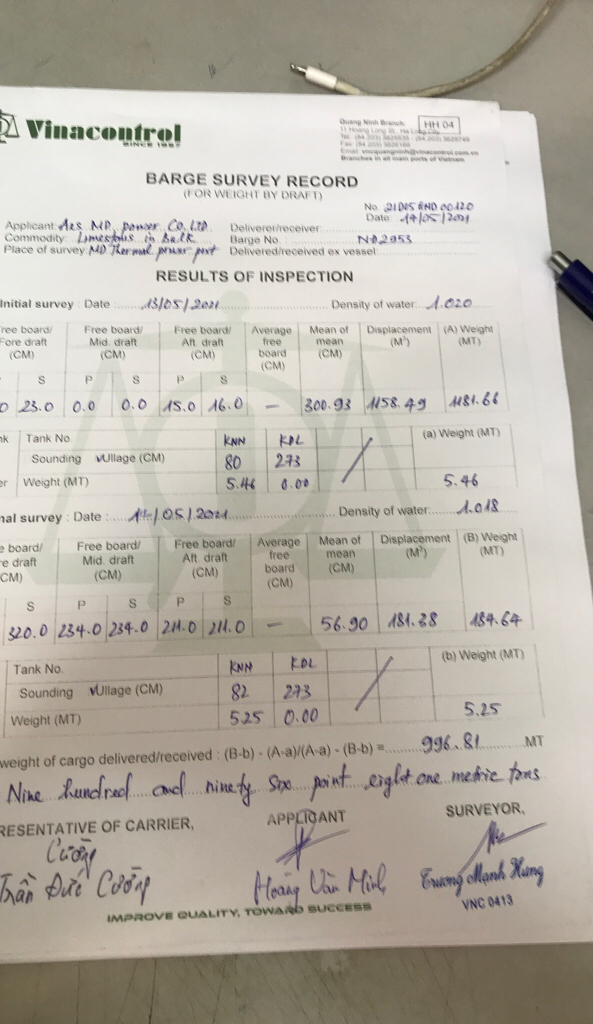 Vinacontrol
SINCE 1957
Quang Ninh Branch:
HH 04
11 Hoang Long St, Ha Long City
Branches in all main ports of Vietnam
BARGE SURVEY RECORD
(FOR WEIGHT BY DRAFT)
No. 21D05 HND 00120
Date: 14/05/2021
Applicant: Aes MD power Co, LTD Deliverer/receiver
Commodity: Limestone in Bulk Barge No. ND2953
Place of survey: MD Thermal power port Delivered/received ex vessel
RESULTS OF INSPECTION
Initial survey : Date : 13/05/2021 Density of water: 1.020
ree board/ Free board/ Free board/ Average Mean of Displacement (A) Weight
Fore draft Mid. draft Aft. draft free mean (M³) (MT)
(CM) (CM) (CM) board (CM)
(CM)
S P S P S
0 23.0 0.0 0.0 15.0 16.0 — 300.93 1158.49 1181.66
nk Tank No. KNN KDL (a) Weight (MT)
Sounding √Ullage (CM) 80 273
er Weight (MT) 5.46 0.00 5.46
nal survey : Date : 14/05/2021 Density of water: 1.018
e board/ Free board/ Free board/ Average Mean of Displacement (B) Weight
re draft Mid. draft Aft. draft free mean (M³) (MT)
CM) (CM) (CM) board (CM)
(CM)
S P S P S
320.0 234.0 234.0 211.0 211.0 — 56.90 181.38 184.64
Tank No. KNN KDL (b) Weight (MT)
Sounding √Ullage (CM) 82 273
Weight (MT) 5.25 0.00 5.25
weight of cargo delivered/received : (B-b) - (A-a)/(A-a) - (B-b) = 996.81 MT
Nine hundred and ninety six point eight one metric tons
RESENTATIVE OF CARRIER, APPLICANT SURVEYOR,
Cường
Trần Đức Cường Hoàng Văn Minh Trương Mạnh Hùng
VNC 0413
IMPROVE QUALITY, TOWARD SUCCESS